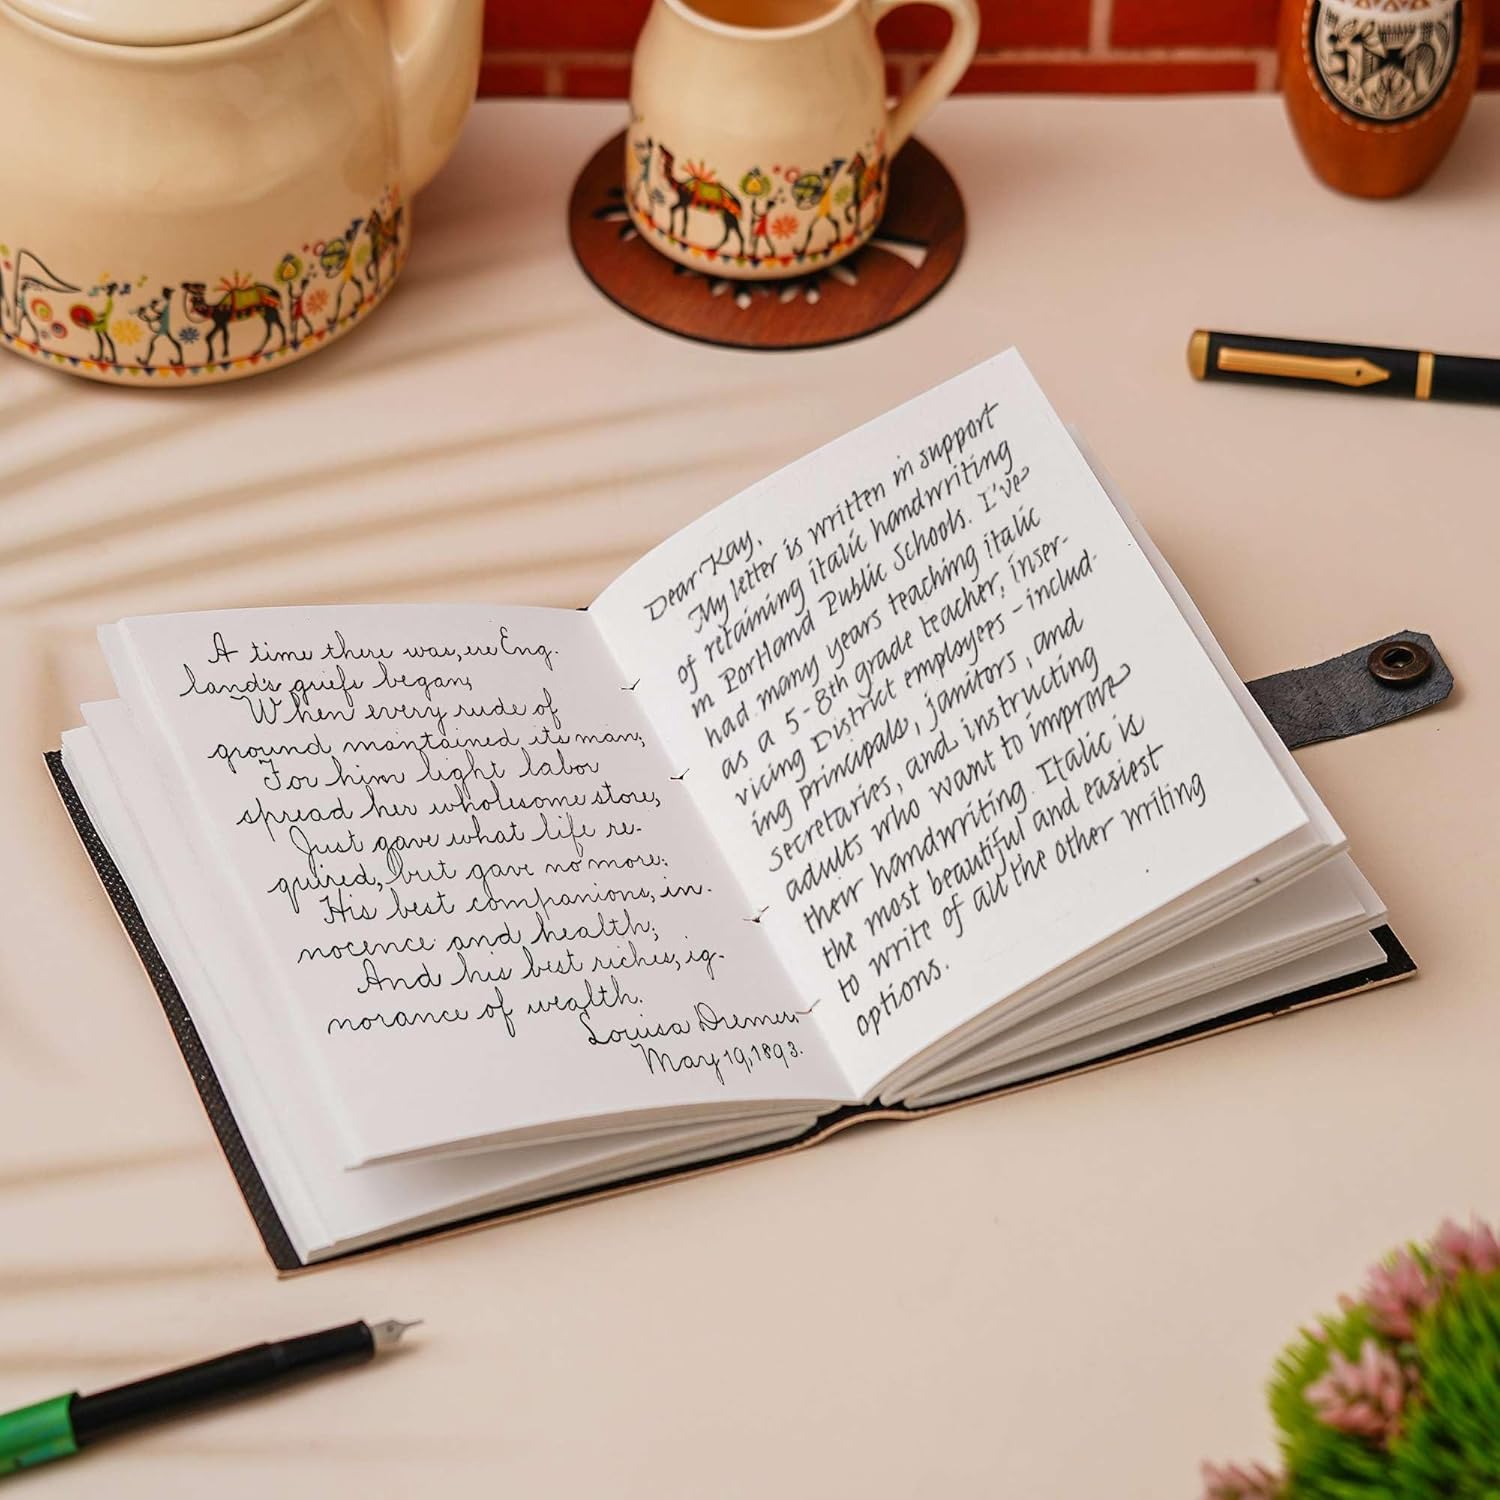 A time there was, ere Eng-
land's griefs began,
When every rude of
ground maintained its man;
For him light labor
spread her wholesome store,
Just gave what life re-
quired, but gave no more:
His best companions, in-
nocence and health;
And his best riches, ig-
norance of wealth.
Louisa Dremer,
May 19, 1893.
Dear Kay,
My letter is written in support
of retaining italic handwriting
in Portland Public Schools. I've
had many years teaching italic
as a 5-8th grade teacher, inser-
vicing District employees - includ-
ing principals, janitors, and
secretaries, and instructing
adults who want to improve
their handwriting. Italic is
the most beautiful and easiest
to write of all the other writing
options.